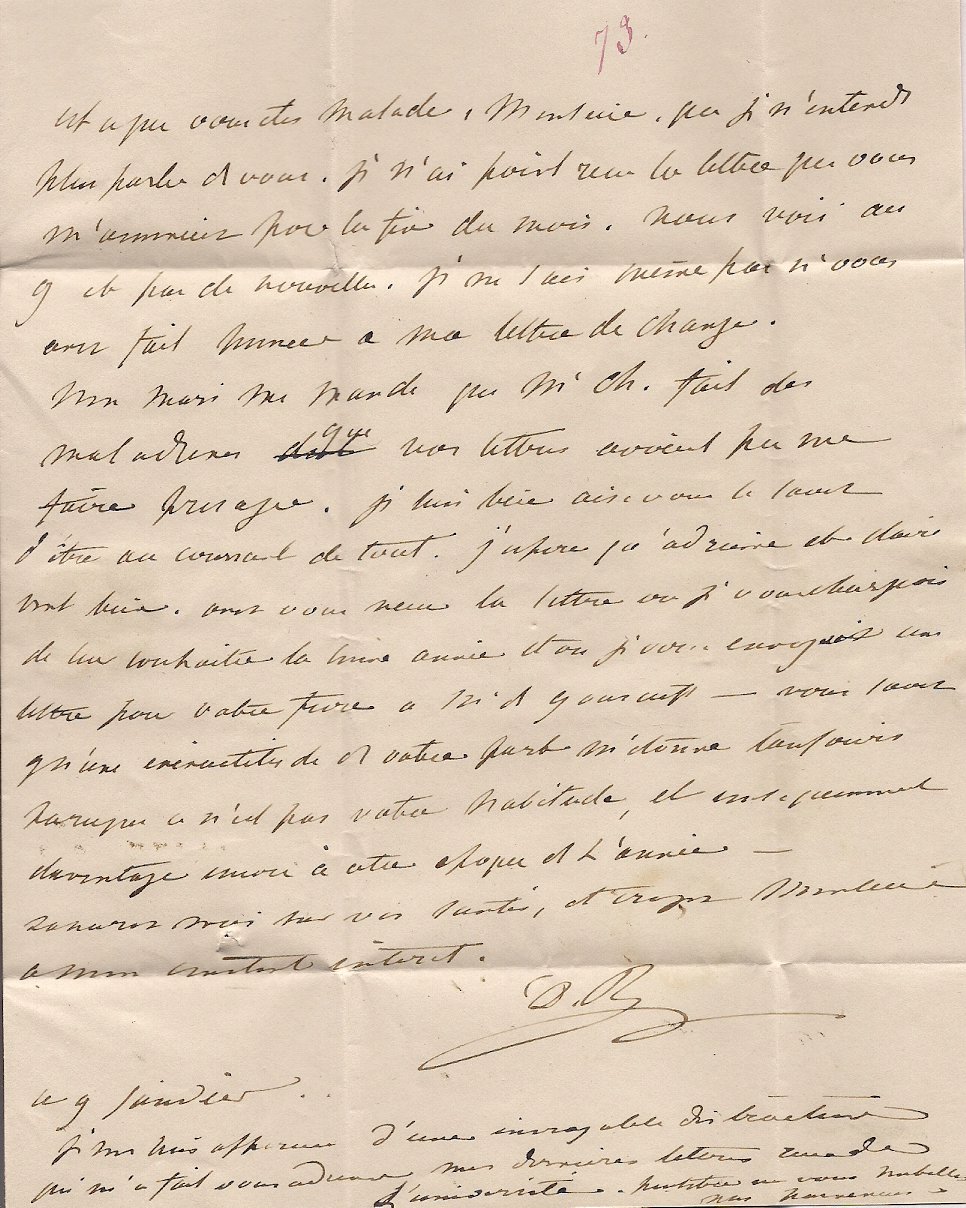 73.
est ce que vous etes malade, Monsieur, que je n'entends
plus parler de vous. je n'ai point recu la lettre que vous
m'annonciez pour la fin du mois. nous voici au
9 et pas de nouvelles. je ne sais même pas si vous
avez fait honneur a ma lettre de change.
Mon mari me mande que Mr Ch. fait des
maladresses que vos lettres avoient pu me
faire presager. je suis bien aise vous le savez
d'être au courant de tout. j'espere qu'adrienne et claire
vont bien. avez vous recu la lettre ou je vous chargeois
de leur souhaiter la bonne année et ou je vous envoyois une
lettre pour votre frere a Mr de — vous savez
qu'une inexactitude de votre part m'étonne toujours
parceque ce n'est pas votre habitude, et consequemment
davantage encore à cette epoque de L'année —
rassurez moi sur vos santés, et croyez Monsieur
a mon constant interet.
D.
ce 9 janvier
je me suis apperçue d'une incroyable distraction
qui m'a fait vous adresser mes dernieres lettres rue de
L'université. peutetre ne vous
pas parvenues